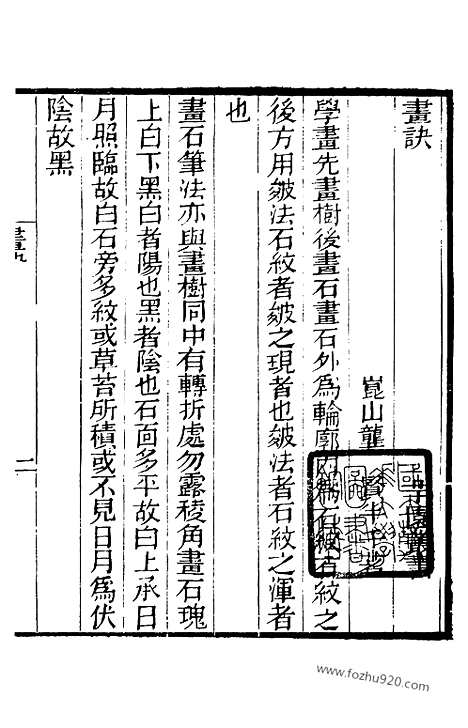 畫訣
崑山龔賢半千著
學畫先畫樹後畫石畫石外為輪廓內為石紋石紋之
後方用皴法石紋者皴之現者也皴法者石紋之渾者
也
畫石筆法亦與畫樹同中有轉折處勿露稜角畫石塊
上白下黑白者陽也黑者陰也石面多平故白上承日
月照臨故白石旁多紋或草苔所積或不見日月為伏
陰故黑
畫訣
二
www.fozhu920.com